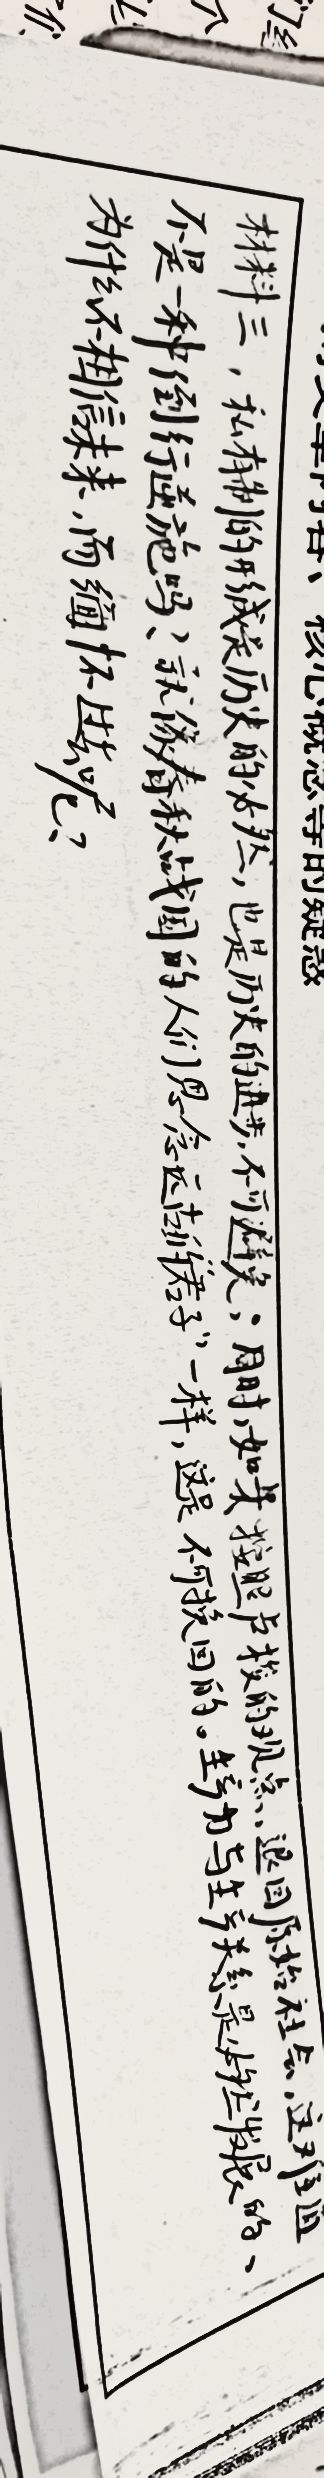 核心概念等的疑惑
材料三,私有制的形成是历史的必然,也是历史的进步,不可避免;同时,如果按照卢梭的观点,退回原始社会,这难道
不是一种倒行逆施吗?就像春秋战国的人们思念远古"君子"一样,这是不可挽回的。生产力与生产关系是始终发展的、
为什么不相信未来,而缅怀过去呢?